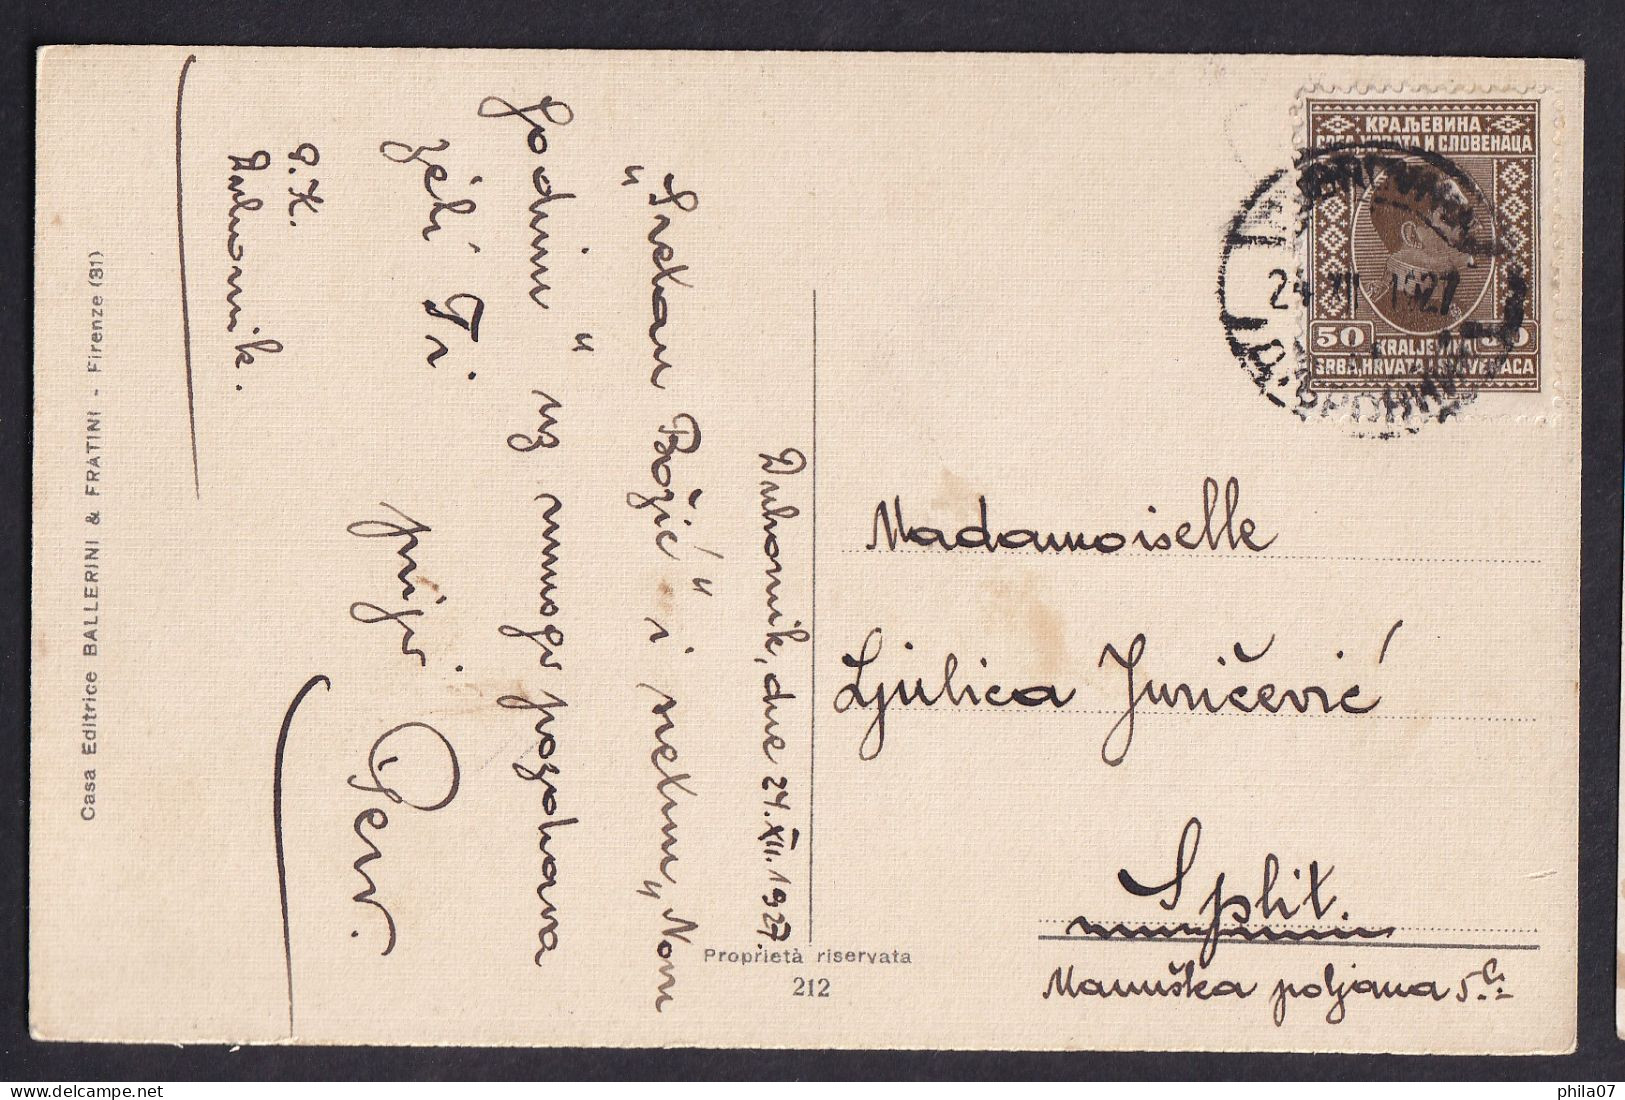 Dubrovnik, dne 24.XII.1927.
"Sretan Božić" i sretnu "Novu
Godinu" uz mnogo pozdrava
želi Ti prijo Pero.
G.K.
Dubrovnik.
Casa Editrice BALLERINI & FRATINI - Firenze (31)
Proprietà riservata
212
КРАЉЕВИНА
СРБА, ХРВАТА И СЛОВЕНАЦА
24 XII 1927
50
KRALJEVINA
SRBA, HRVATA I SLOVENACA
Madamoiselle
Ljulica Juričević
Split.
Manuška poljana 5.
phila07